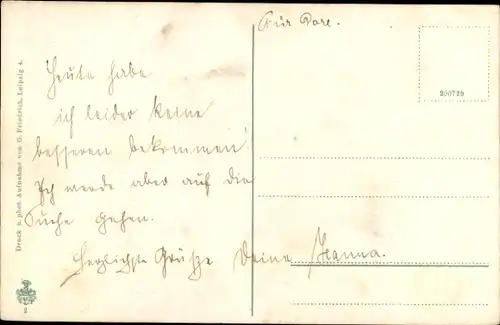 Für Dore.
200729
Heute habe
ich leider keine
besseren bekommen!
Ich werde aber auf die
Suche gehen.
Herzlichste Grüße Deine Hanna.
Druck u. phot. Aufnahme von G. Friedrich, Leipzig 4.
2